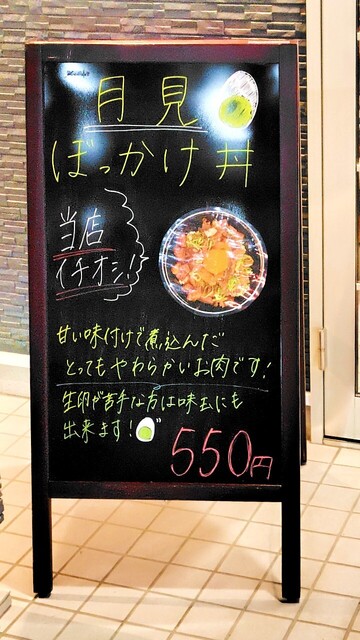 月見
ぼっかけ丼
当店
イチオシ!
甘い味付けで煮込んだ
とってもやわらかいお肉です!
生卵が苦手な方は味玉にも
出来ます!
550円